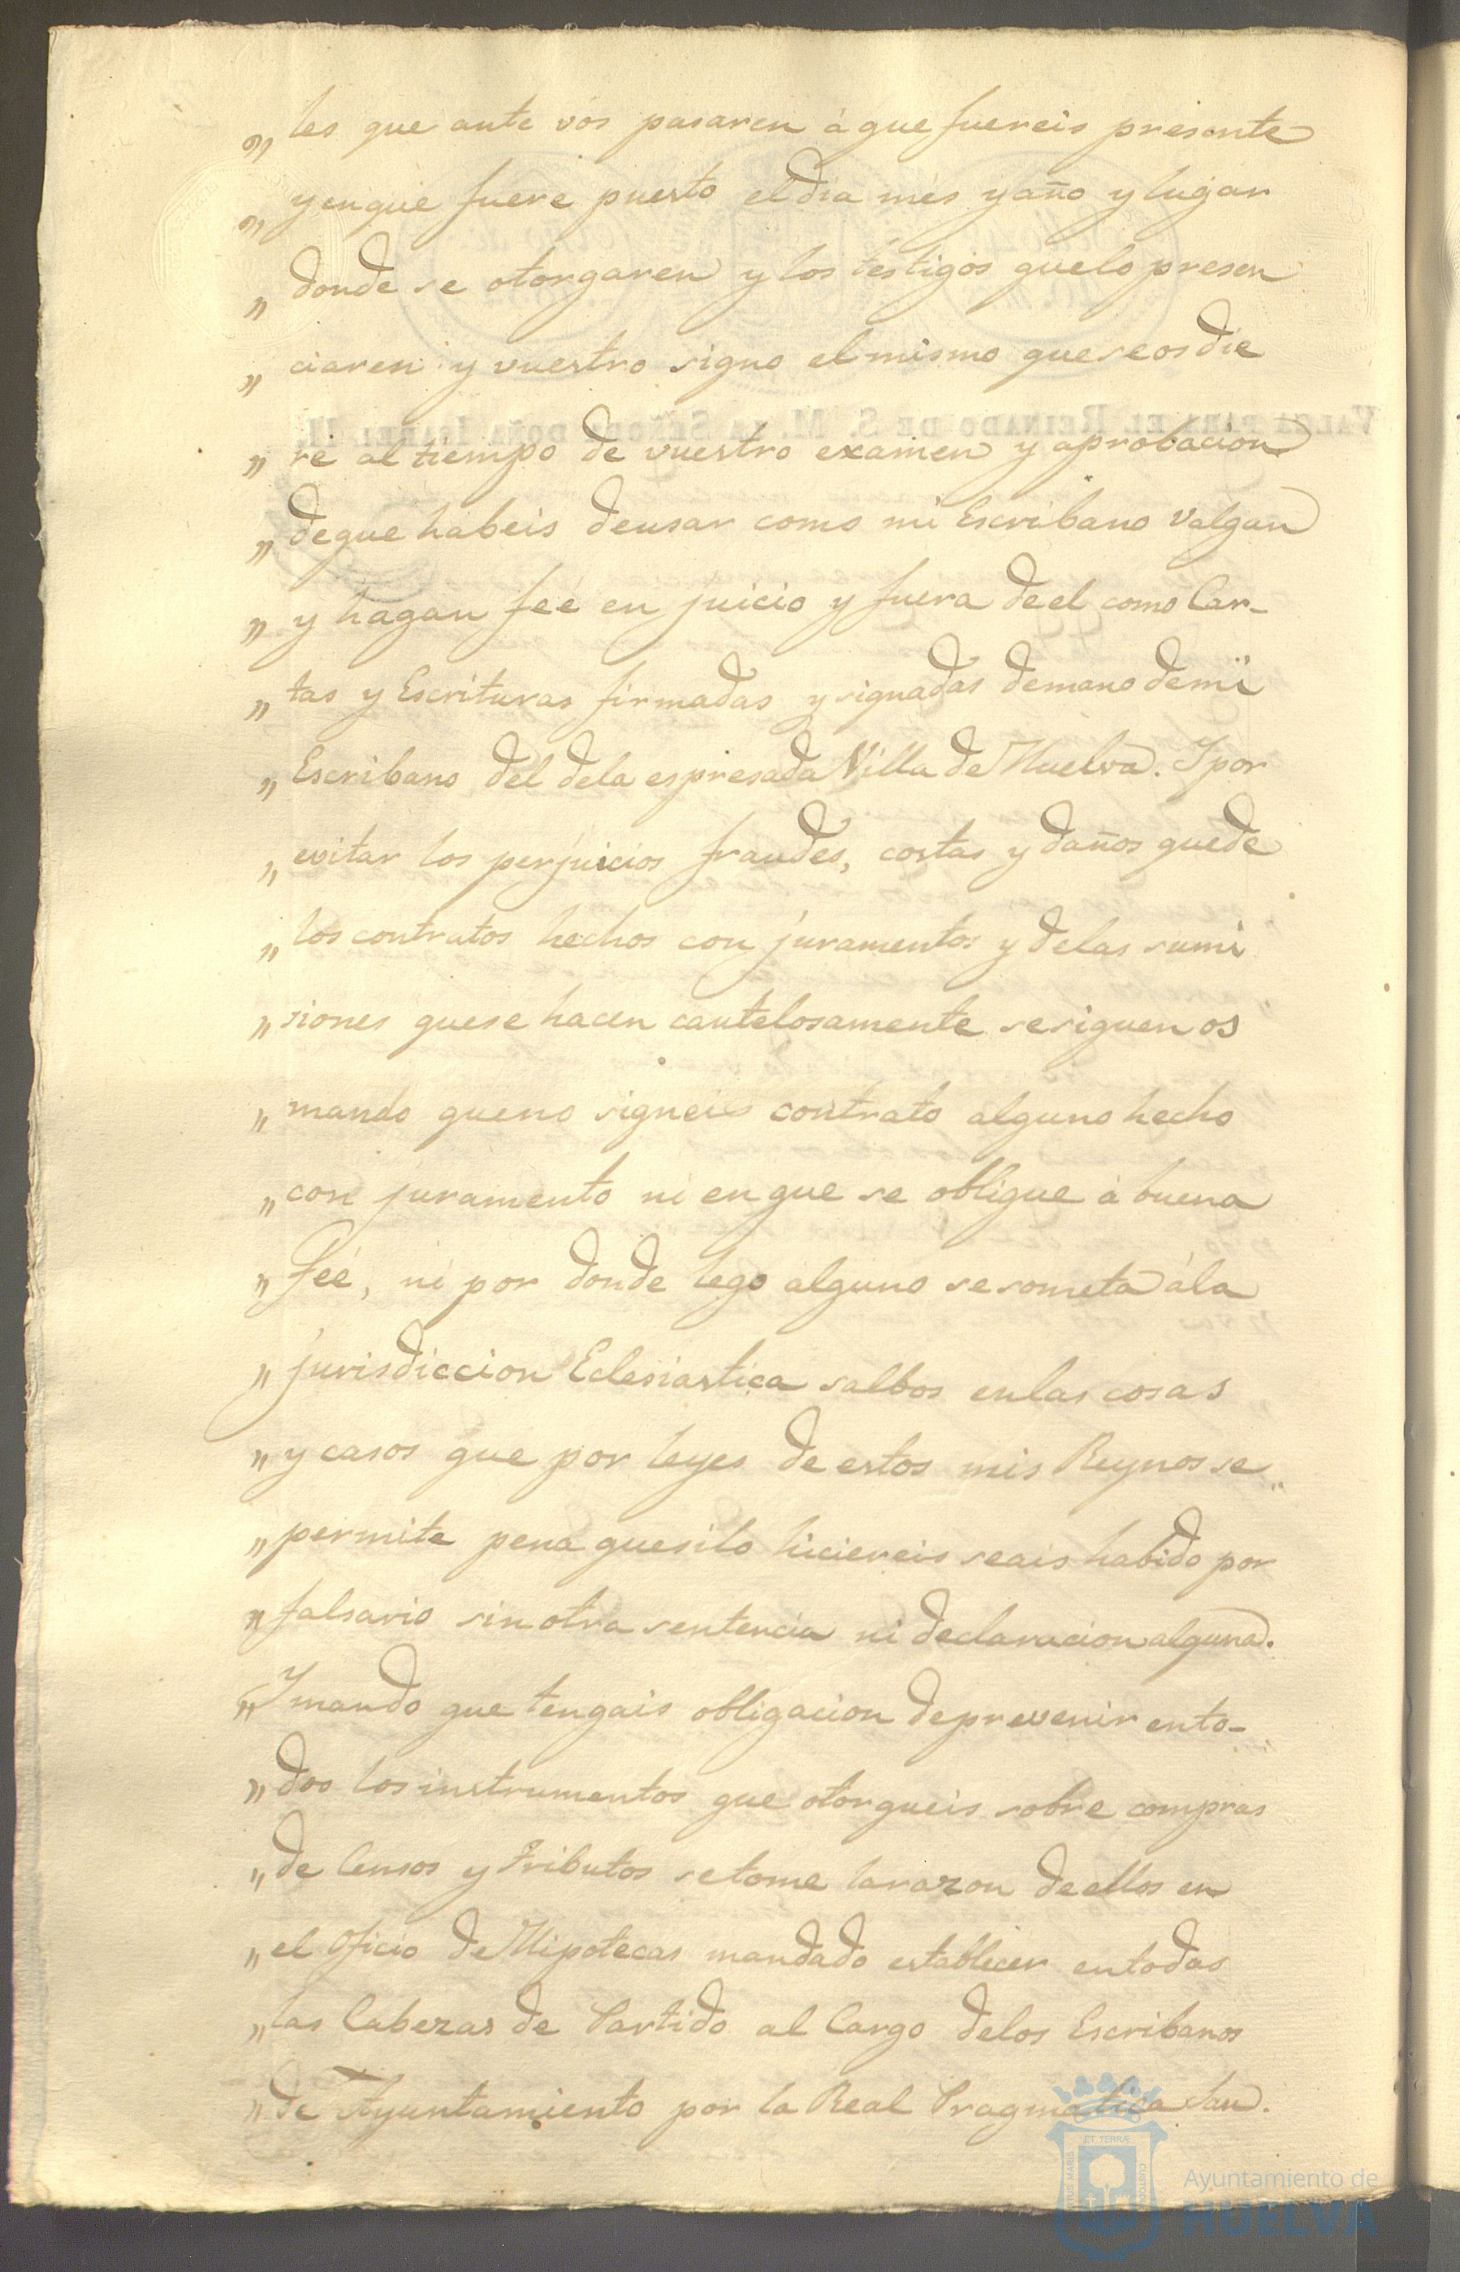 „ les que ante vos pasaren á que fuereis presente
„ y en que fuere puesto el dia mes y año y lugar
„ donde se otorgaren y los testigos que lo presen
„ ciaren y vuestro signo el mismo que se os die
„ re al tiempo de vuestro examen y aprobacion
„ de que habeis de usar como mi Escribano valgan
„ y hagan feé en juicio y fuera de el como Car-
„ tas y Escrituras firmadas y signadas de mano de mi
„ Escribano del de la espresada Villa de Huelva. Y por
„ evitar los perjuicios fraudes, costas y daños que de
„ los contratos hechos con juramentos y de las sumi
„ siones que se hacen cautelosamente se siguen os
„ mando que no signeis contrato alguno hecho
„ con juramento ni en que se obligue á buena
„ feé, ni por donde lego alguno se someta á la
„ jurisdiccion Eclesiastica salbos en las cosas
„ y casos que por leyes de estos mis Reynos se
„ permite pena que si lo hiciereis seais habido por
„ falsario sin otra sentencia ni declaracion alguna.
„ Y mando que tengais obligacion de prevenir en to-
„ dos los instrumentos que otorgueis sobre compras
„ de Censos y tributos se tome la razon de ellos en
„ el Oficio de Hipotecas mandado establecer en todas
„ las Cabezas de Partido al Cargo de los Escribanos
„ de Ayuntamiento por la Real Pragmatica San.
VALGA PARA EL REINADO DE S. M. LA SEÑORA DOÑA ISABEL II.
Ayuntamiento de
HUELVA